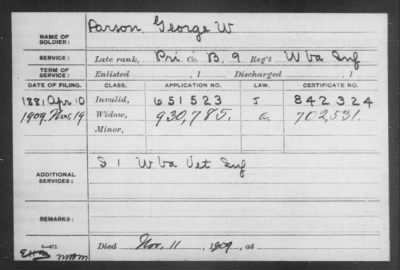 NAME OF SOLDIER: Parson, George W
SERVICE: Late rank, Pri Co. B, 9 Reg't W Va Inf
TERM OF SERVICE: Enlisted , 1 Discharged , 1
DATE OF FILING. CLASS. APPLICATION NO. LAW. CERTIFICATE NO.
1881 Apr 10 Invalid, 651523 J 842324
1909, Nov. 19 Widow, 930,785. a. 702,531.
Minor,
ADDITIONAL SERVICES: S 1 W Va Vet Inf
REMARKS:
Died Nov. 11, 1909, at